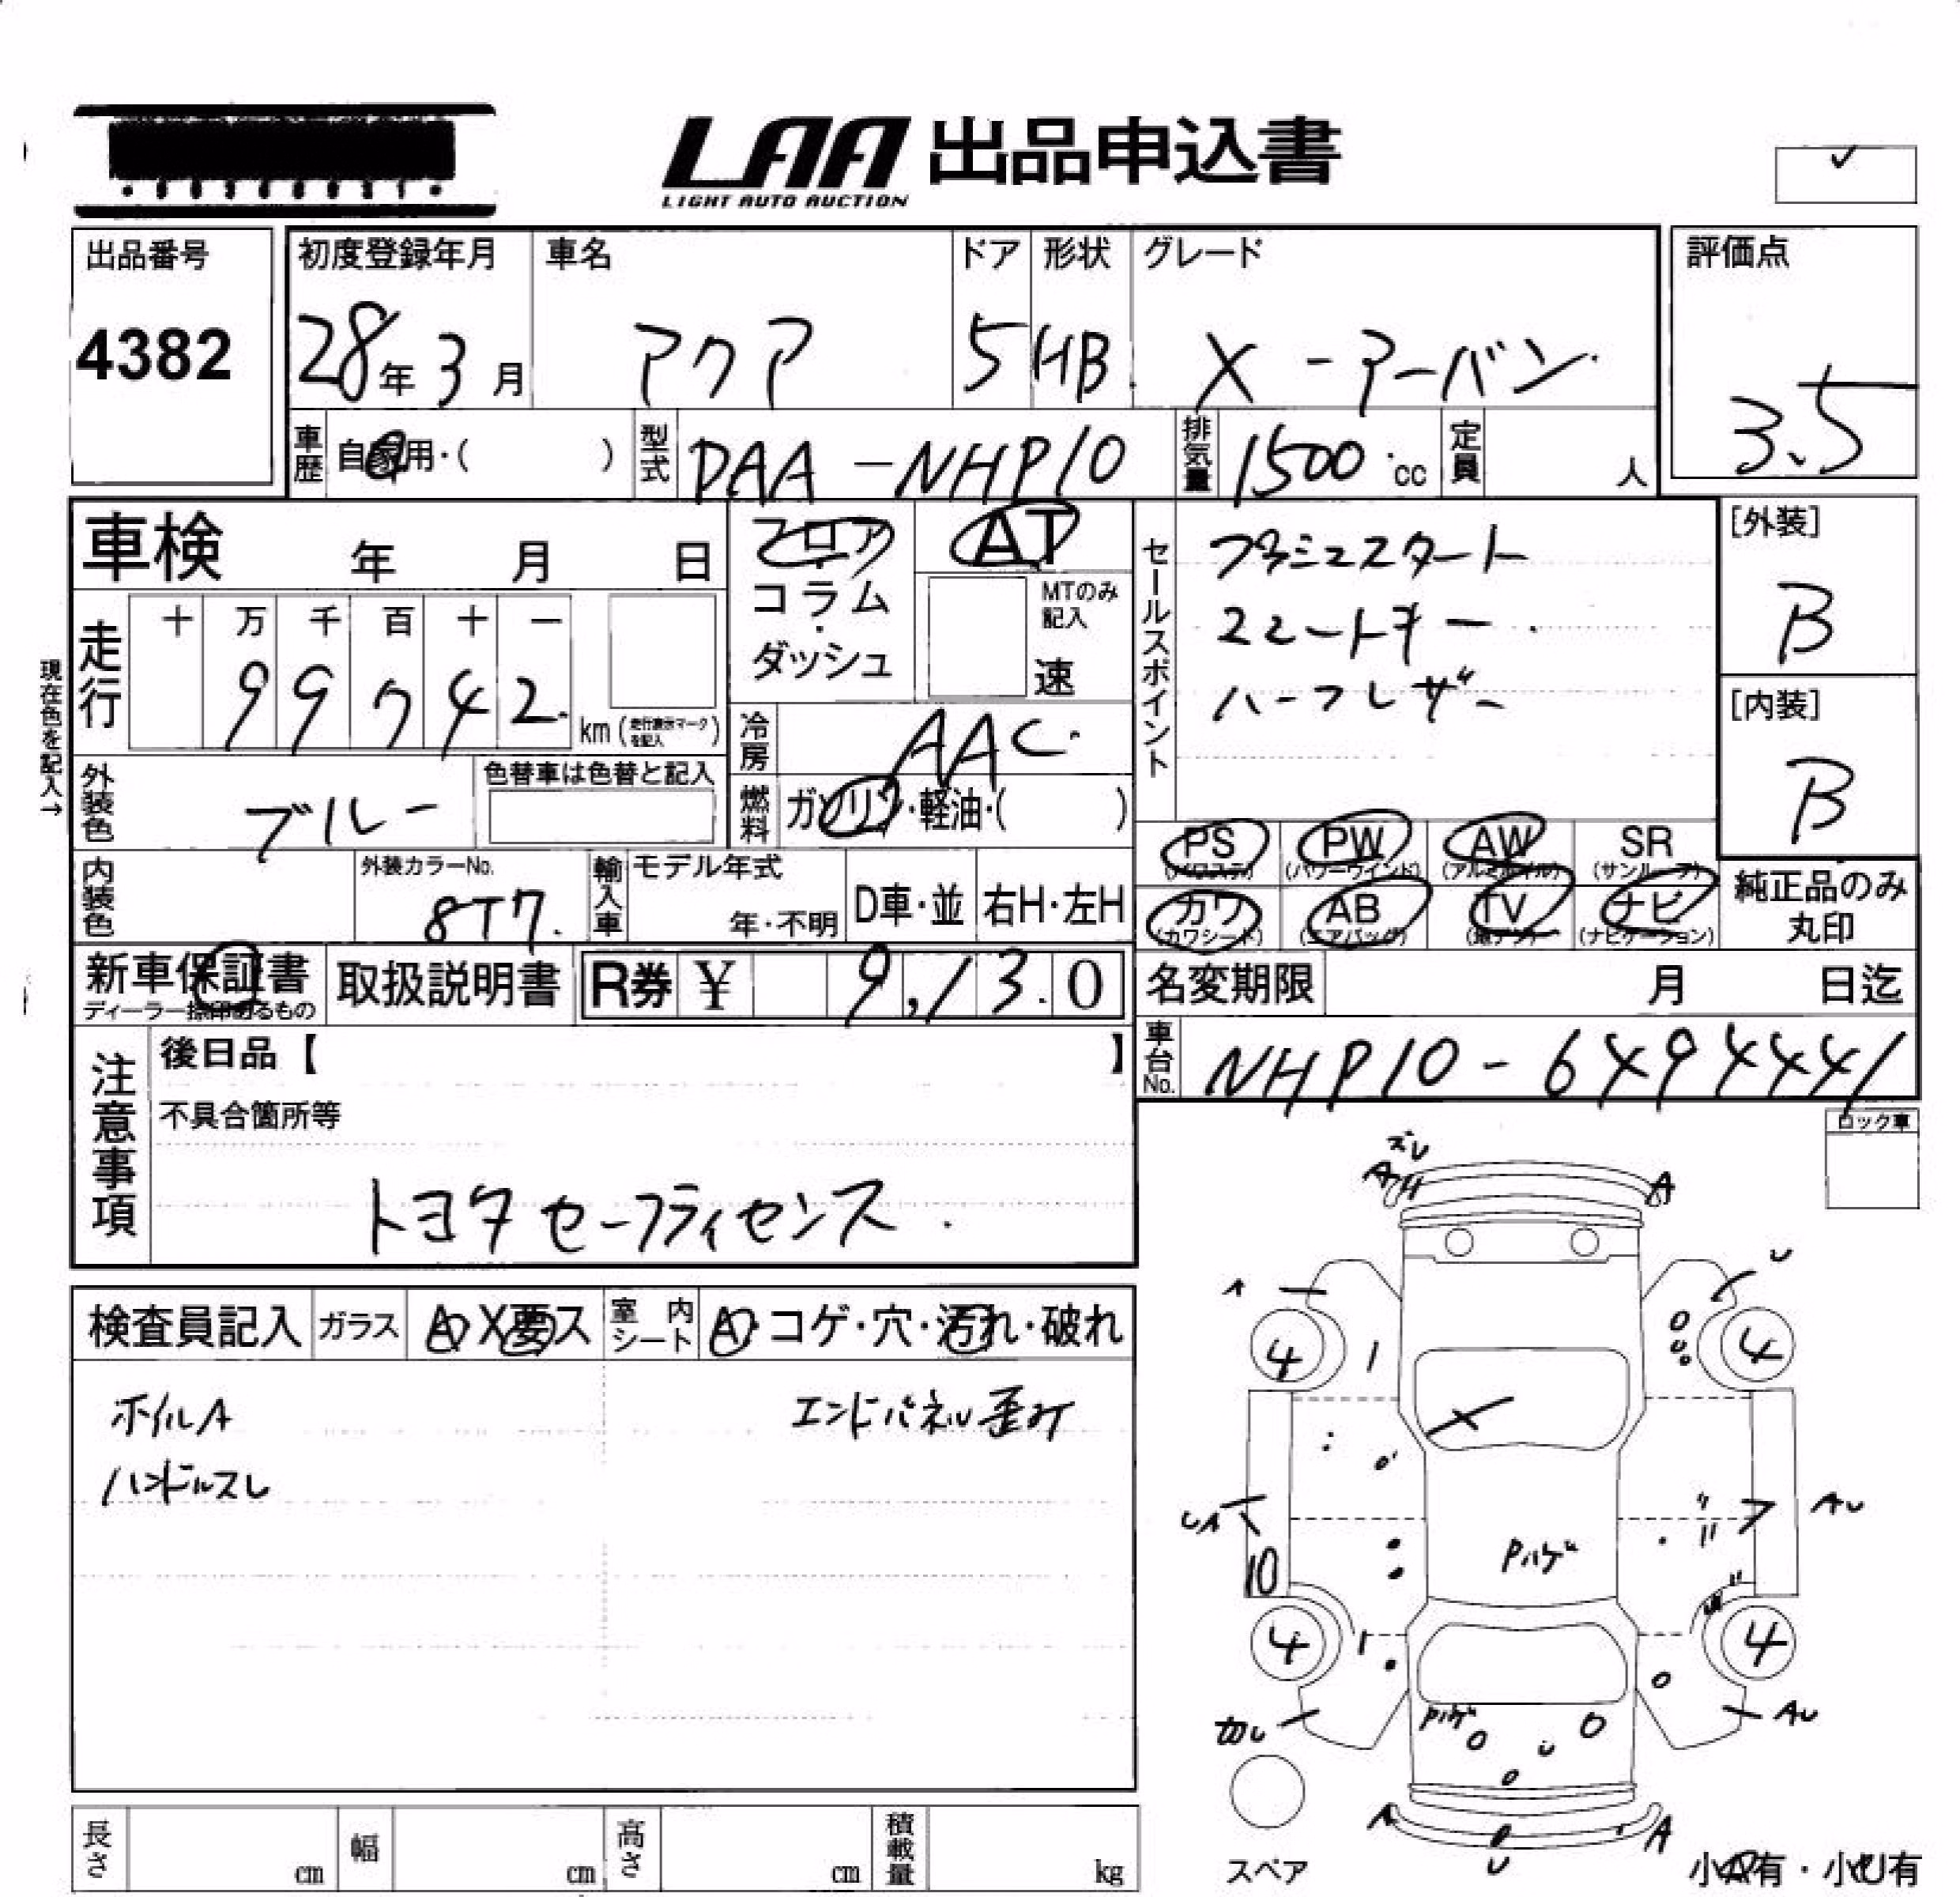 LAA 出品申込書
LIGHT AUTO AUCTION
出品番号
4382
初度登録年月
28年3月
車名
アクア
ドア
5
形状
HB
グレード
X-アーバン
評価点
3.5
車歴
自家用・( )
型式
DAA-NHP10
排気量
1500 cc
定員
人
車検 年 月 日
フロア
コラム
・
ダッシュ
AT
MTのみ記入
速
セールスポイント
プッシュスタート
スマートキー
ハーフレザー
[外装]
B
[内装]
B
現在色を記入→
走行
十 万 千 百 十 一
9 9 7 4 2
km (走行表示マークを記入)
冷房
AAC
燃料
ガソリン・軽油・( )
外装色
ブルー
色替車は色替と記入
内装色
外装カラーNo.
8T7.
輸入車
モデル年式
年・不明
D車・並
右H・左H
PS
(パワステ)
PW
(パワーウインド)
AW
(アルミホイル)
SR
(サンルーフ)
カワ
(カワシート)
AB
(エアバッグ)
TV
(地デジ)
ナビ
(ナビゲーション)
純正品のみ
丸印
新車保証書
ディーラー捺印あるもの
取扱説明書
R券 ¥ 9,13.0
名変期限 月 日迄
車台No.
NHP10-6494441
注意事項
後日品【 】
不具合箇所等
トヨタセーフティセンス
ロック車
検査員記入
ガラス
A・X要ス
室内シート
A・コゲ・穴・汚れ・破れ
ホイルA
ハンドルスレ
エンドパネル歪み
ズレ
A
A
A
U
4
4
UA
AU
10
Pハゲ
4
4
カU
AU
Pハゲ
A
A
U
スペア
小A有・小U有
長さ cm
幅 cm
高さ cm
積載量 kg